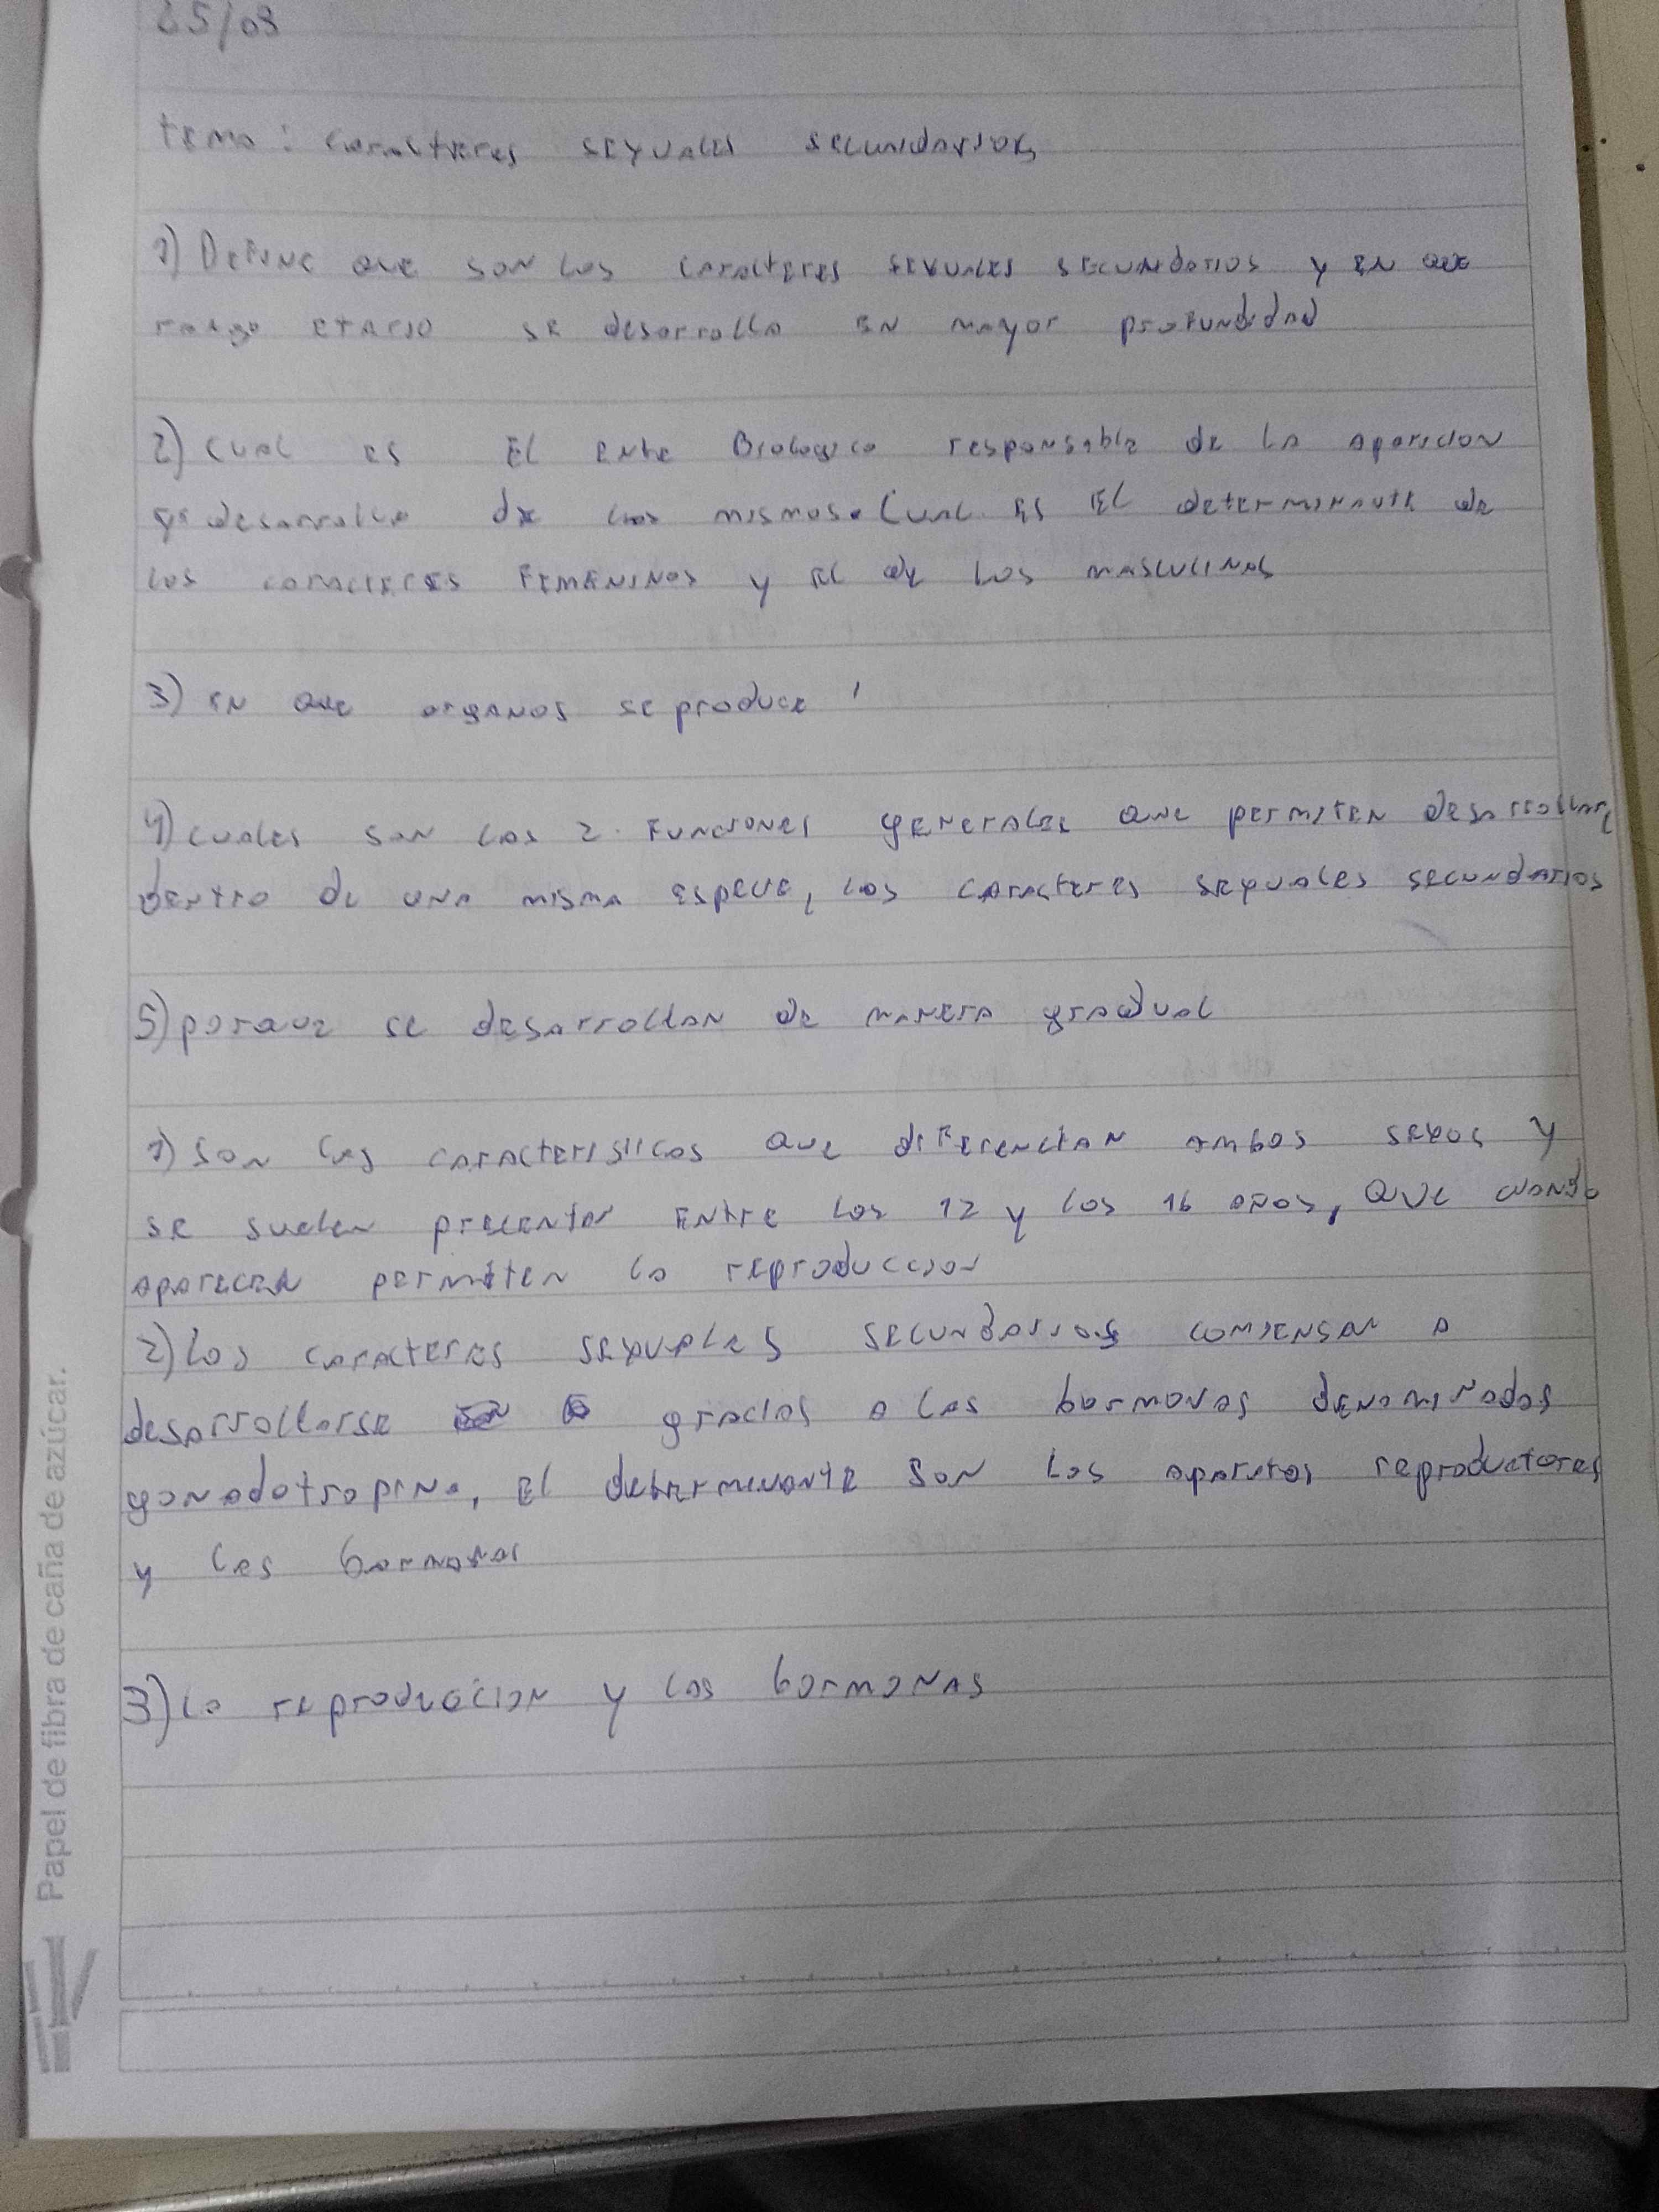 25/03
tema: caracteres sexuales secundarios
1) Define que son los caracteres sexuales secundarios y en que
rango etario se desarrolla en mayor profundidad
2) cual es El ente Biologico responsable de la aparicion
desarrollo de los mismos. Cual es El determinante de
los caracteres femeninos y el de los masculinos
3) en que organos se produce
4) cuales son las 2 funciones generales que permiten desarrollar,
dentro de una misma especie, los caracteres sexuales secundarios
5) porque se desarrollan de manera gradual
1) Son las caracteristicas que diferencian ambos sexos y
se suelen presentar entre los 12 y los 16 años, que cuando
aparecen permiten la reproduccion
2) Los caracteres sexuales secundarios comiensan a
desarrollarse gracias a las hormonas denominadas
gonadotropina, El determinante son los aparatos reproductores
y las hormonas
3) la reproducion y las hormonas
Papel de fibra de caña de azúcar.